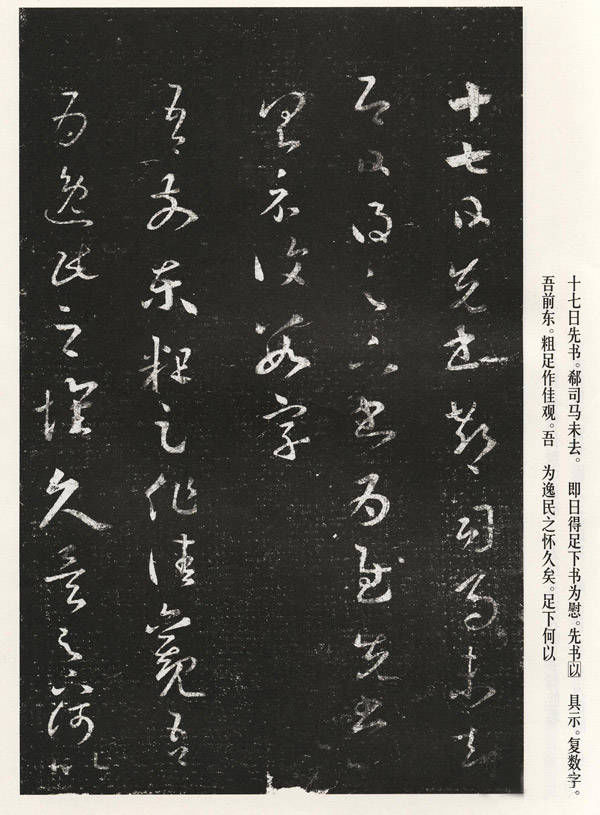 十七日先书郗司马未去
即日得足下书为慰先书
具示复数字
吾前东粗足作佳观吾
为逸民之怀久矣足下何以
十七日先书。郗司马未去。　即日得足下书为慰。先书以　具示。复数字。
吾前东。粗足作佳观。吾　为逸民之怀久矣。足下何以